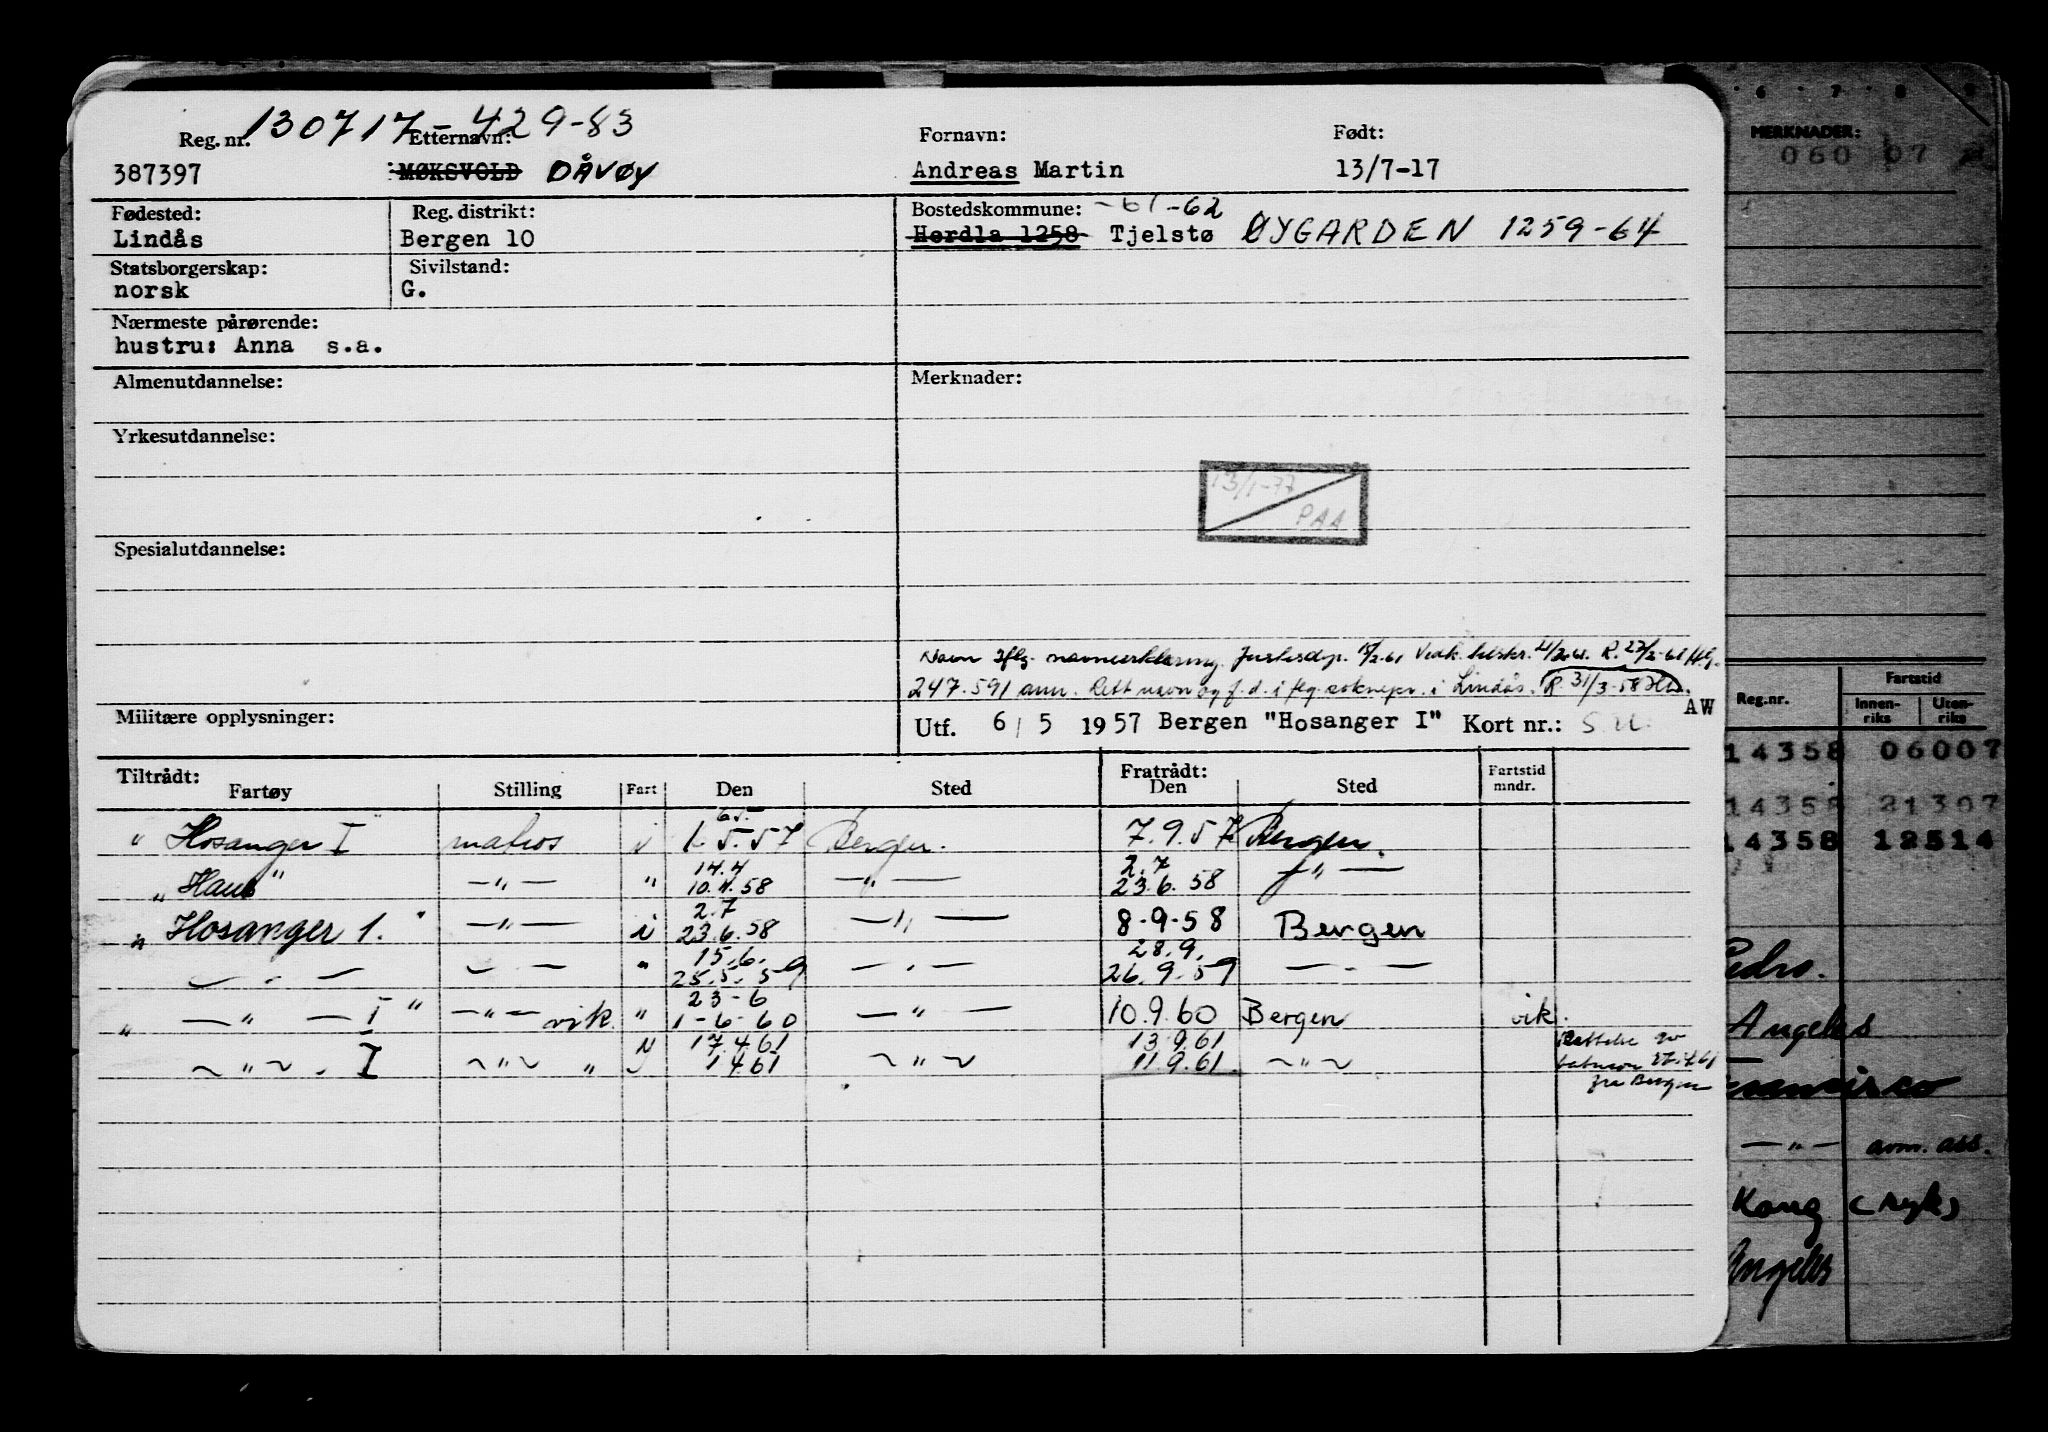 130717-429-83
Reg. nr. Etternavn: Fornavn: Født:
387397 MØKSVOLD DÅVØY Andreas Martin 13/7-17
Fødested: Reg. distrikt: Bostedskommune: -61-62
Lindås Bergen 10 Herdla 1258 Tjelstø ØYGARDEN 1259-64
Statsborgerskap: Sivilstand:
norsk G.
Nærmeste pårørende:
hustru: Anna s.a.
Almenutdannelse: Merknader:
Yrkesutdannelse:
13/1-77
PAA
Spesialutdannelse:
Navn iflg. navneerklæring Justisdep. 15/2-61 Vedk. tilskr. R. 27/2-61 H.G.
247.591 ann. Rett navn og f.d. i flg. soknepr. i Lindås. R. 31/3-58
Militære opplysninger: AW
Utf. 6/5 1957 Bergen "Hosanger I" Kort nr.: S.U.
Tiltrådt: Fratrådt: Fartstid
Fartøy Stilling Fart Den Sted Den Sted mndr.
"Hosanger I" matros i 6.5. 1.5.57 Bergen. 7.9.57 Bergen.
"Haus" —"— " 14.4 10.4.58 —"— 2.7 23.6.58 —"—
"Hosanger 1." —"— i 2.7 23.6.58 —"— 8-9-58 Bergen
— " — — " — " 15.6. 25.5.59 — " — 28.9. 26.9.59 — " —
" —"— I " —"— vik. " 23-6 1-6-60 —"— 10.9.60 Bergen vik.
~"~ . I ~"~ " 17.4.61 1.4.61 ~"~ 13.9.61 11.9.61. ~"~ Rettelse av
27.4.61
fra Bergen
6 7 8 9
MERKNADER:
060 07
Reg.nr. Fartstid
Innen-riks Uten-riks
14358 06007
14358 21307
14358 12514
Pedro.
Angeles
—"— avm. ass.
Kong (syk)
Angeles